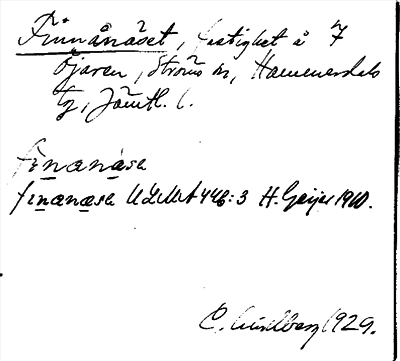 Finnånäset, fastighet å 7
Öjaren, Ströms sn, Hammerdals
tg, Jämtl. l.
finanåsa
finanæsa ULMA 446:3 H. Geijer 1910.
C. Lindberg 1929.